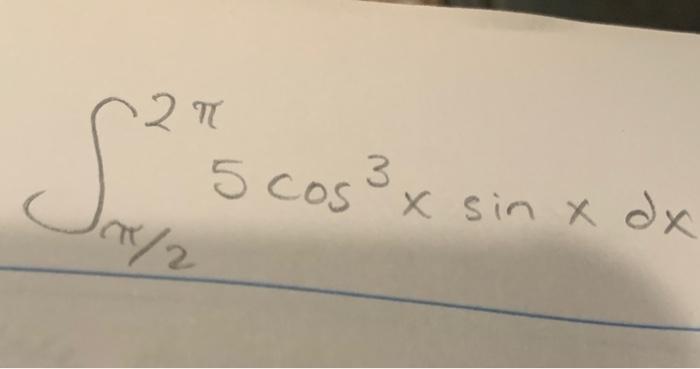 ∫_{π/2}^{2π} 5 cos³x sin x dx